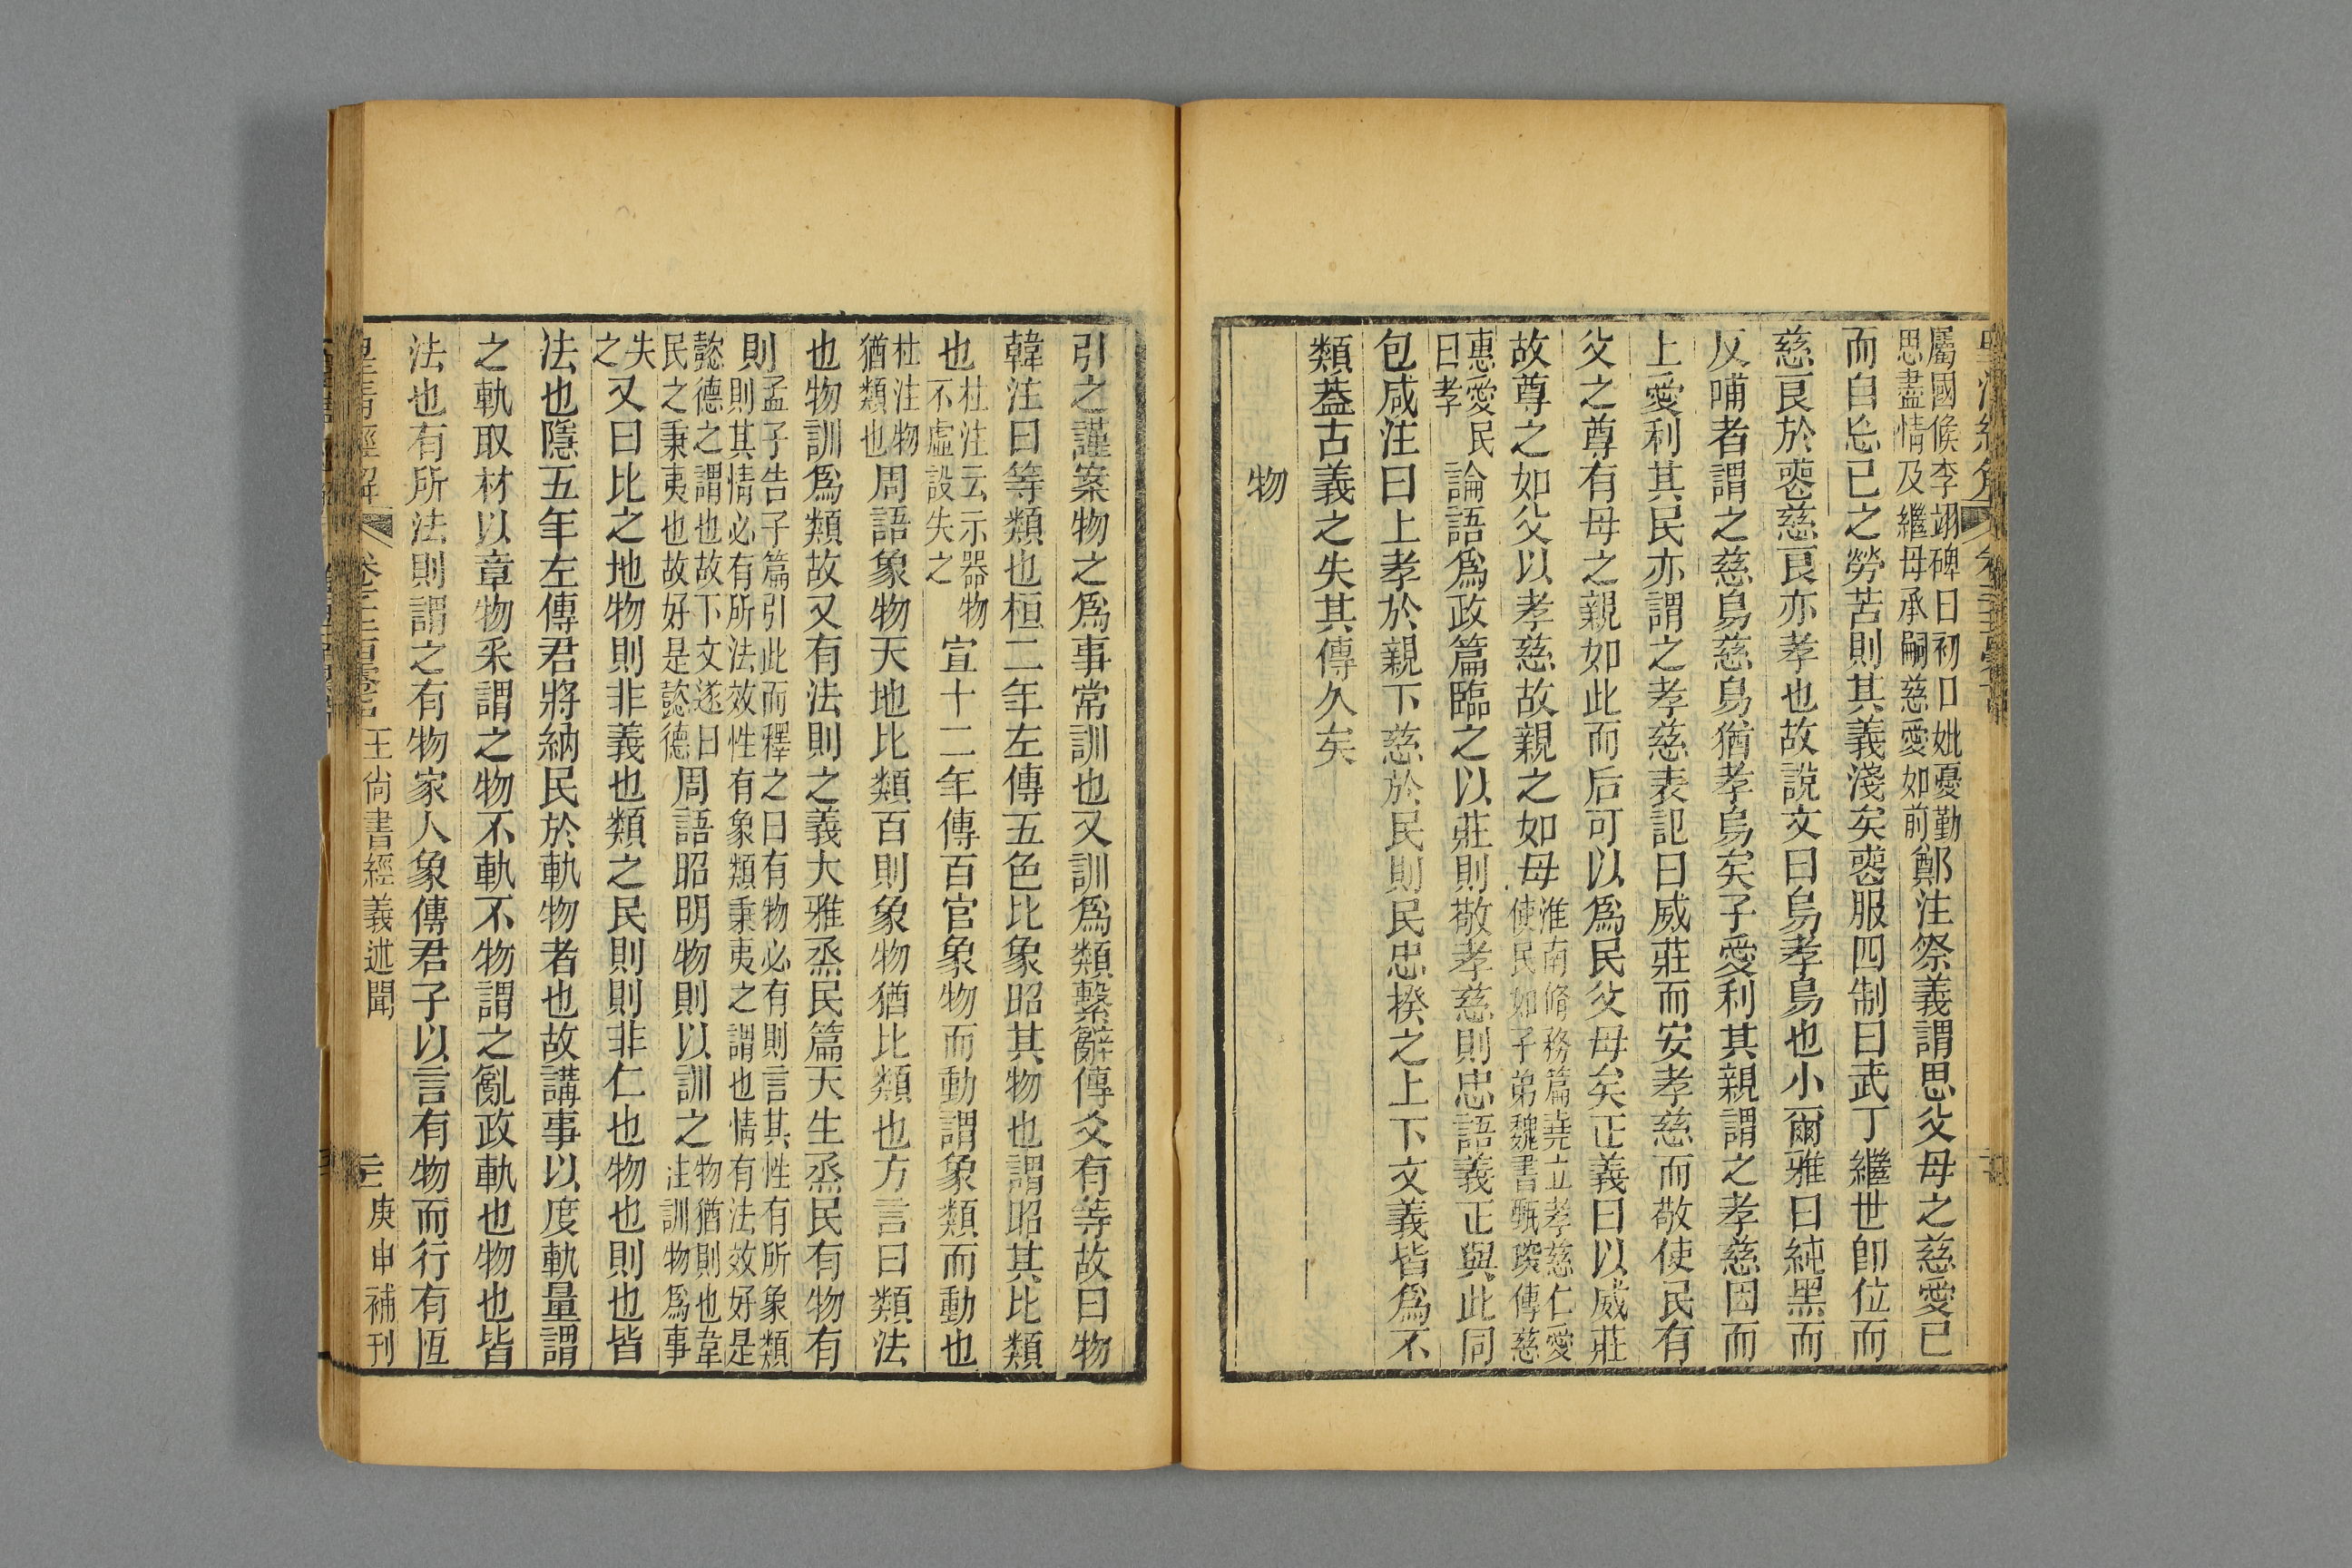 屬國侯李翊碑曰初 妣憂勤
思盡情及繼母承嗣慈愛如前
鄭注祭義謂思父母之慈愛已
而自忘已之勞苦則其義淺矣喪服四制曰武丁繼世卽位而
慈良於喪慈良亦孝也故說文曰烏孝鳥也小爾雅曰純黑而
反哺者謂之慈烏慈烏猶孝鳥矣子愛利其親謂之孝慈因而
上愛利其民亦謂之孝慈表記曰威莊而安孝慈而敬使民有
父之尊有母之親如此而后可以爲民父母矣正義曰以威莊
故尊之如父以孝慈故親之如母
淮南脩務篇堯立孝慈仁愛
使民如子弟魏書甄琛傳慈
惠愛民
曰孝
論語爲政篇臨之以莊則敬孝慈則忠語義正與此同
包咸注曰上孝於親下慈於民則民忠揆之上下文義皆爲不
類葢古義之失其傳久矣
物
引之謹案物之爲事常訓也又訓爲類繫辭傳爻有等故曰物
韓注曰等類也桓二年左傳五色比象昭其物也謂昭其比類
也
杜注云示器物
不虛設失之
宣十二年傳百官象物而動謂象類而動也
杜注物
猶類也
周語象物天地比類百則象物猶比類也方言曰類法
也物訓爲類故又有法則之義大雅烝民篇天生烝民有物有
則
孟子告子篇引此而釋之曰有物必有則言其性有所象類
則其情必有所法效性有象類秉夷之謂也情有法效好是
懿德之謂也故下文遂曰
民之秉夷也故好是懿德
周語昭明物則以訓之
物猶則也韋
注訓物爲事
失
之
又曰比之地物則非義也類之民則則非仁也物也則也皆
法也隱五年左傳君將納民於軌物者也故講事以度軌量謂
之軌取材以章物采謂之物不軌不物謂之亂政軌也物也皆
法也有所法則謂之有物家人象傳君子以言有物而行有恆
皇淸經解
王尙書經義述聞
庚申補刊